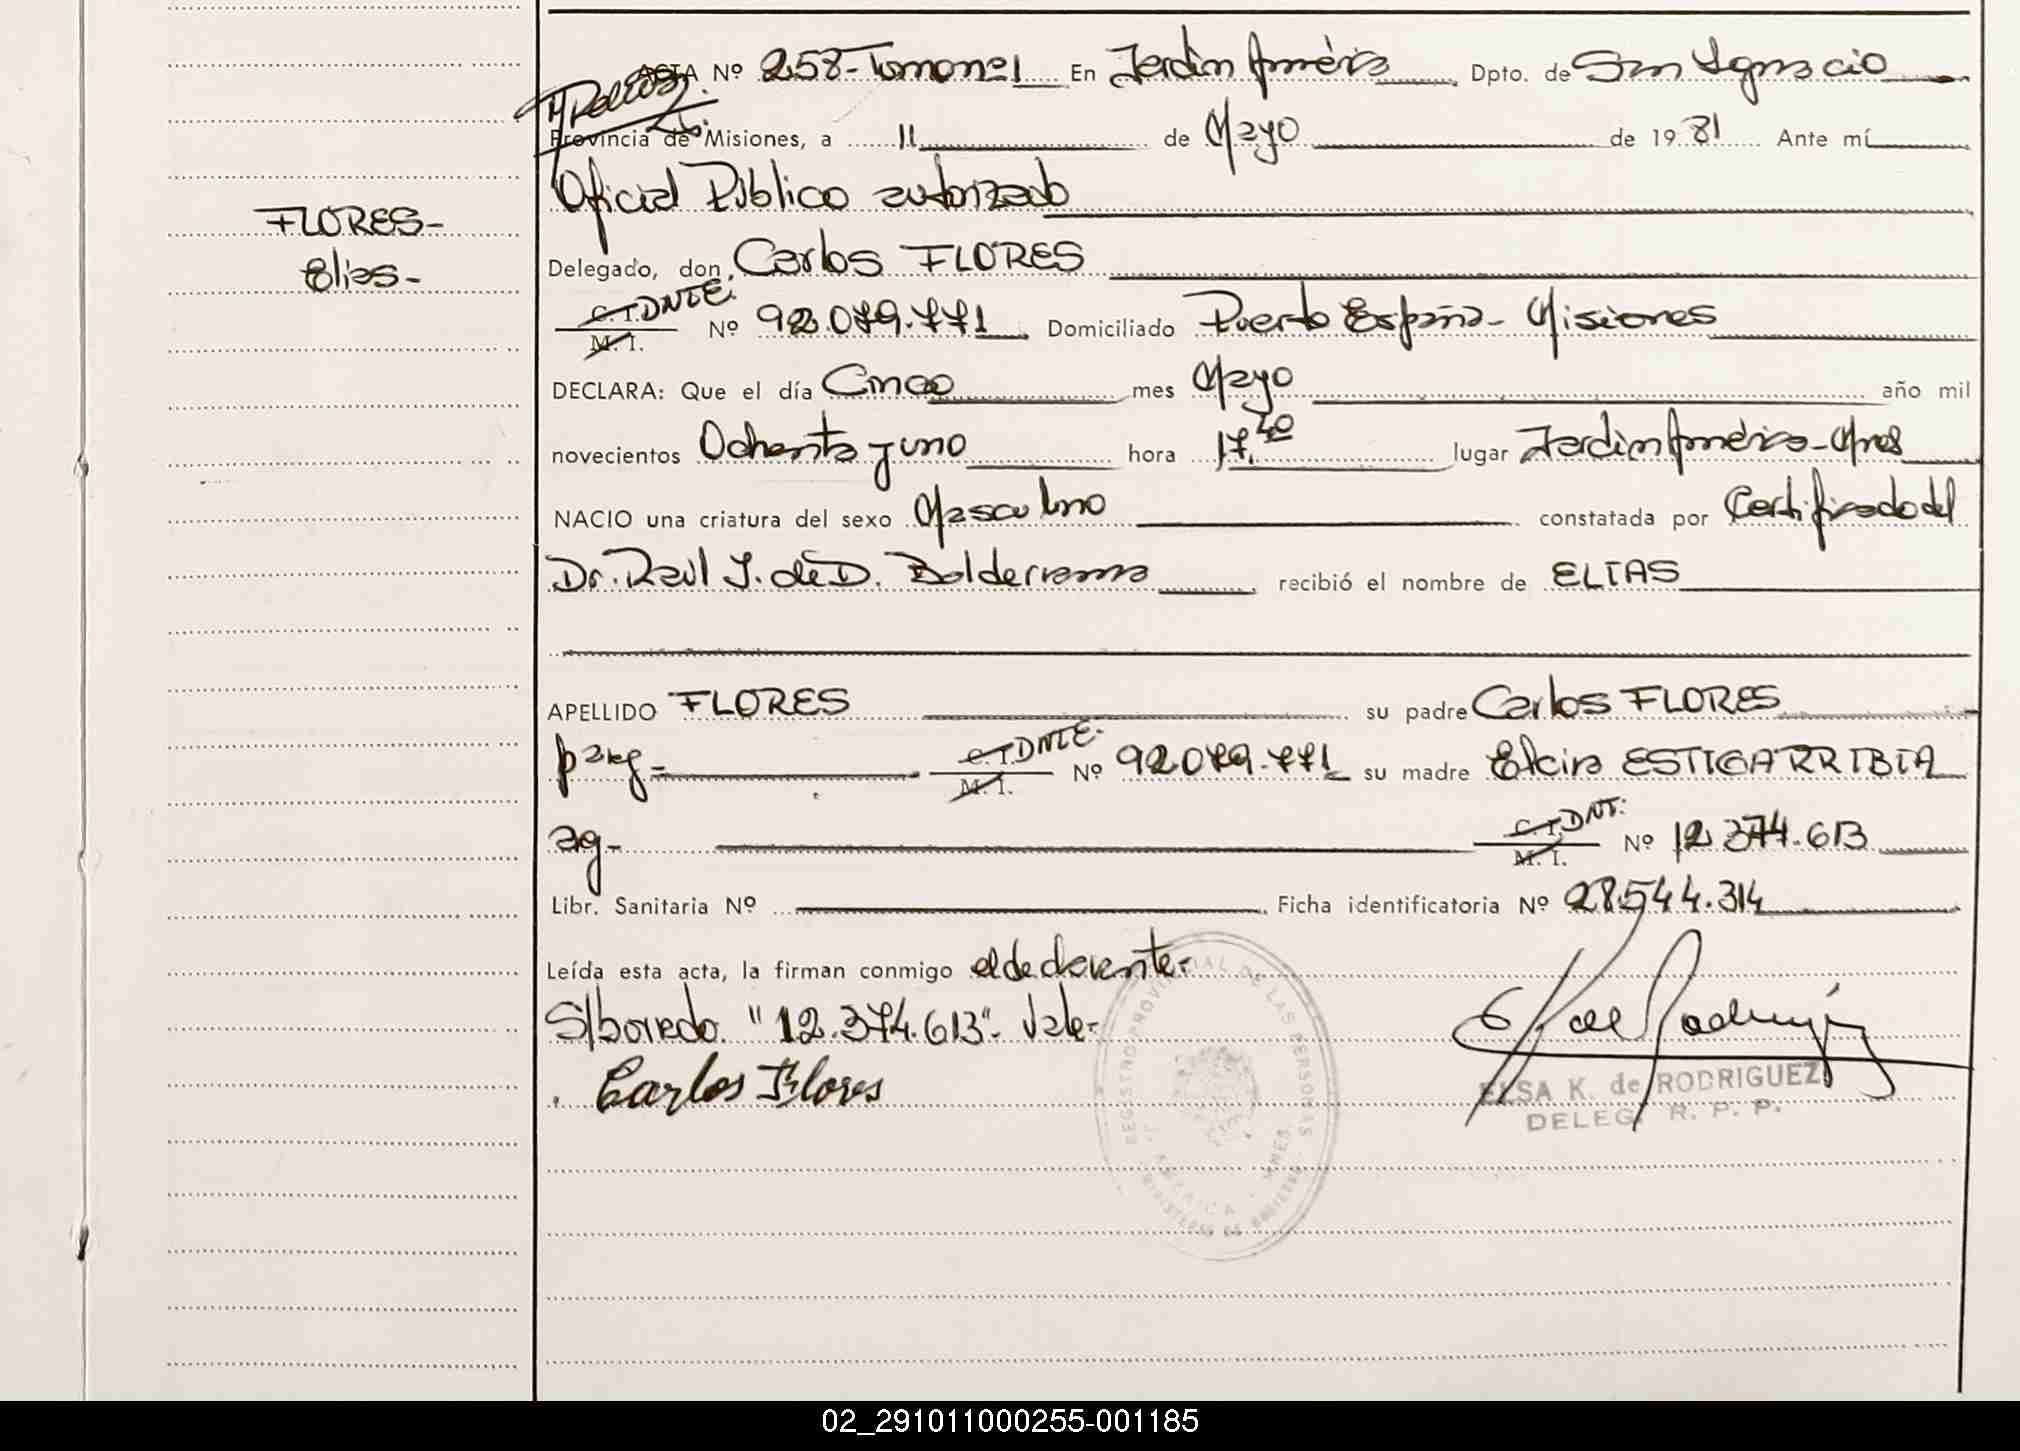 FLORES-
Elias-
ACTA Nº 258-Tomo nº1 En Jardín América Dpto. de San Ignacio
Provincia de Misiones, a 11 de Mayo de 1981 Ante mí
Oficial Público autorizado
Delegado, don Carlos FLORES
C.I. DNIE. M.I. Nº 92.079.771 Domiciliado Puerto España- Misiones
DECLARA: Que el día Cinco mes Mayo año mil
novecientos Ochenta y uno hora 17.40 lugar Jardín América-Mnes
NACIO una criatura del sexo Masculino constatada por Certificado del
Dr. Raúl J. de D. Balderrama recibió el nombre de ELIAS
APELLIDO FLORES su padre Carlos FLORES
parg- C.I. DNIE. M.I. Nº 92.079.771 su madre Elcira ESTIGARRIBIA
ag- C.I. DNI. M.I. Nº 12.374.613
Libr. Sanitaria Nº Ficha identificatoria Nº 28.544.314
Leída esta acta, la firman conmigo el declarante-
S/borrado "12.374.613"- Vale-
Carlos Flores
REGISTRO PROVINCIAL DE LAS PERSONAS
ELSA K. de RODRIGUEZ
DELEG. R. P. P.
02_291011000255-001185